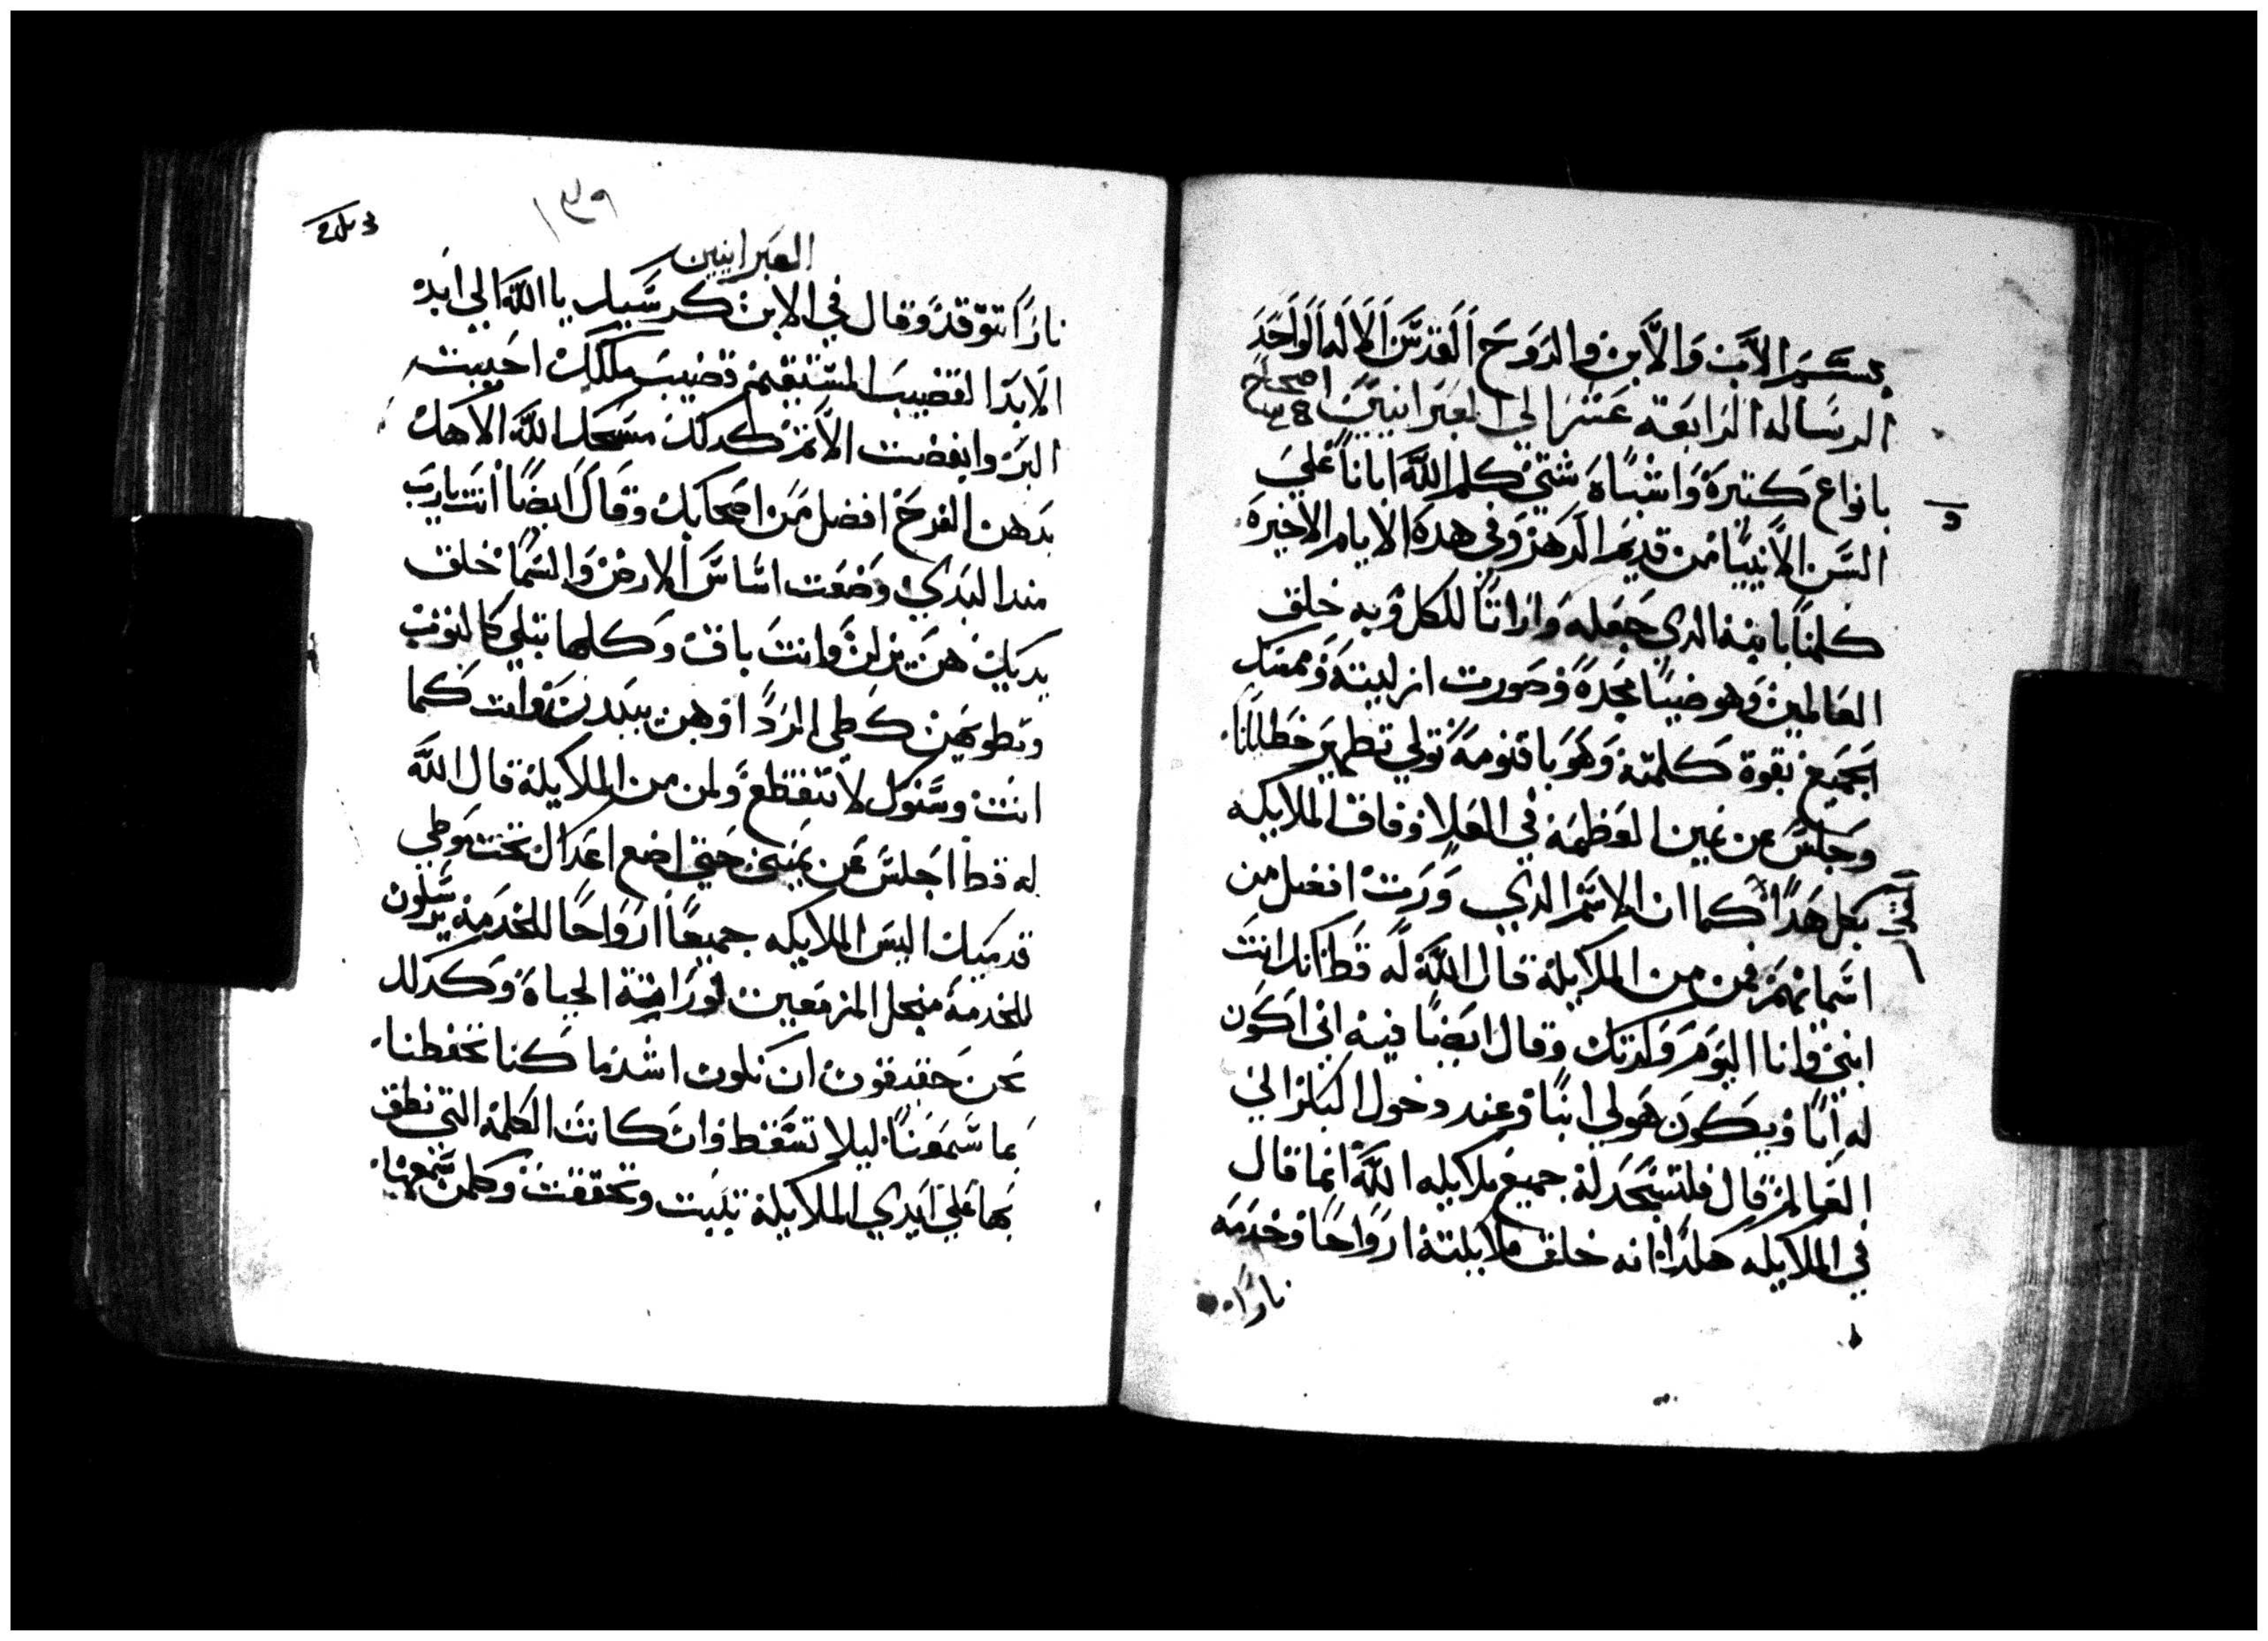 بسم الاب والابن والروح القدس الاله الواحد
الرساله الرابعه عشر الي العبرانيين اصحاح
بانواع كتيرة واشباه شتي كلم الله ابانا علي
السن الانبيا من قديم الدهر وفي هده الايام الاخيره
كلمنا بابنه الدي جعله وارتا للكل وبه خلق
العالمين وهو ضيا مجده وصورت ازليته وممسك
الجميع بقوة كلمته وهو باقنومه تولي تطهير خطايانا
وجلس عن يمين العظمه في العلا وفاق الملايكه
بكل هدا كما ان الاسم الدي ورت افضل من
اسمايهم فمن من الملايكة قال الله له قط انك انت
ابني وانا اليوم ولدتك وقال ايضا فيه اني اكون
له ابا ويكون هو لي ابنا وعند دخول البكر الي
العالم قال فلتسجد له جميع ملايكه الله انما قال
في الملايكه هكدا انه خلق ملايكته ارواحا وخدمه
نارا
١٣٩
العبرانيين
نارا تتوقد وقال في الابن كرسيك يا الله الي ابد
الابد القضيب المستقيم قضيب ملكك احببت
البر وابغضت الاتم كدلك مسحك الله الاهك
بدهن الفرح افضل من اصحابك وقال ايضا انت يارب
مند البدي وضعت اساس الارض والسما خلق
يديك هن يزلن وانت باق وكلها تبلي كالتوب
وتطويهن كطي الردا وهن يبدلن وانت كما
انت وسنوك لا تنقطع ولمن من الملايكة قال الله
له قط اجلس عن يميني حتي اضع اعداك تحت موطي
قدميك اليس الملايكه جميعا ارواحا للخدمه يرسلون
للخدمة منجل المزمعين لوراتة الحياة وكدلك
نحن حقيقون ان نكون اشد ما كنا تحفظنا
بما سمعنا ليلا نسقط وان كانت الكلمة التي نطق
بها علي ايدي الملايكة تبتت وتحققت وكلمن سمعها